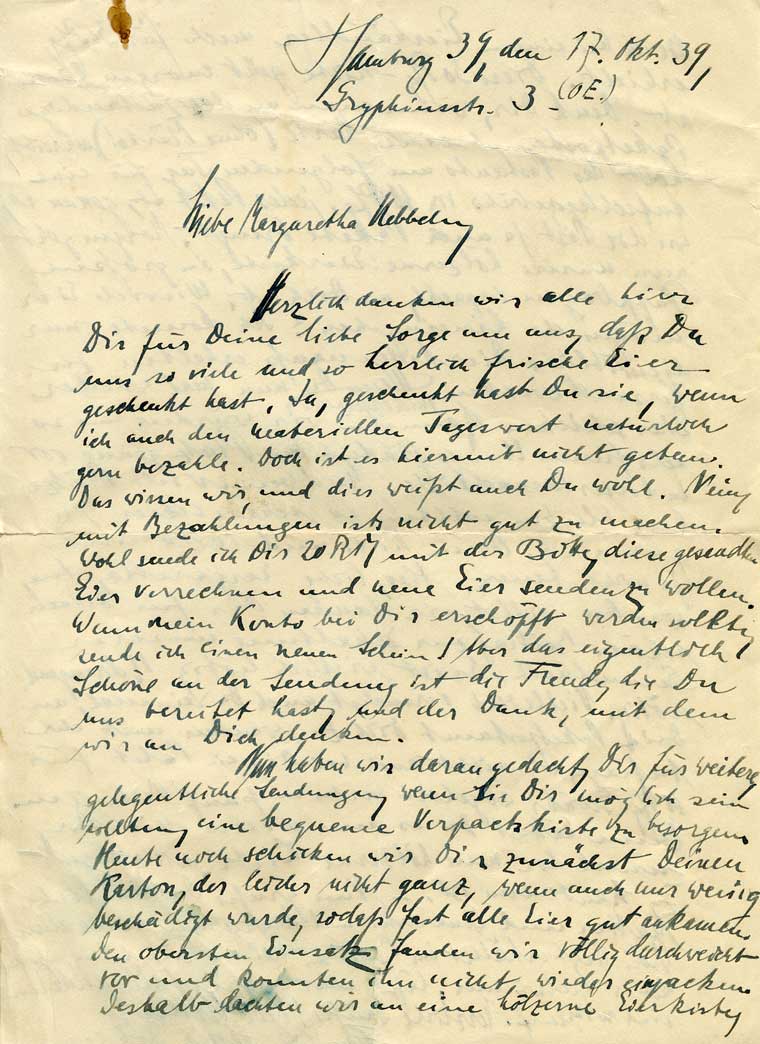 Hamburg 39, den 17. Okt. 39,
Gryphiusstr. 3 - (OE.)
Liebe Margaretha Hebbeln,
Herzlich danken wir alle hier
Dir für Deine liebe Sorge um uns, daß Du
uns so viele und so herrlich frische Eier
geschenkt hast. Ja, geschenkt hast Du sie, wenn
ich auch den materiellen Tageswert natürlich
gern bezahle. Doch ist es hiermit nicht getan.
Das wissen wir, und dies weißt auch Du wohl. Nein,
mit Bezahlungen ists nicht gut zu machen.
Wohl sende ich Dir 20 RM mit der Bitte, diese gesandten
Eier verrechnen und neue Eier senden zu wollen.
Wenn mein Konto bei Dir erschöpft werden sollte,
sende ich einen neuen Schein! Aber das eigentlich
Schöne an der Sendung ist die Freude, die Du
uns bereitet hast, und der Dank, mit dem
wir an Dich denken.
Nun haben wir daran gedacht, Dir für weitere,
gelegentliche Sendungen, wenn sie Dir möglich sein
sollten, eine bequeme Verpackskiste zu besorgen.
Heute noch schicken wir Dir zunächst Deinen
Karton, der leider nicht ganz, wenn auch nur wenig
beschädigt wurde, sodaß fast alle Eier gut ankamen.
Den obersten Einsatz fanden wir völlig durchweicht
vor und konnten ihn nicht wieder einpacken.
Deshalb dachten wir an eine hölzerne Eierkiste,